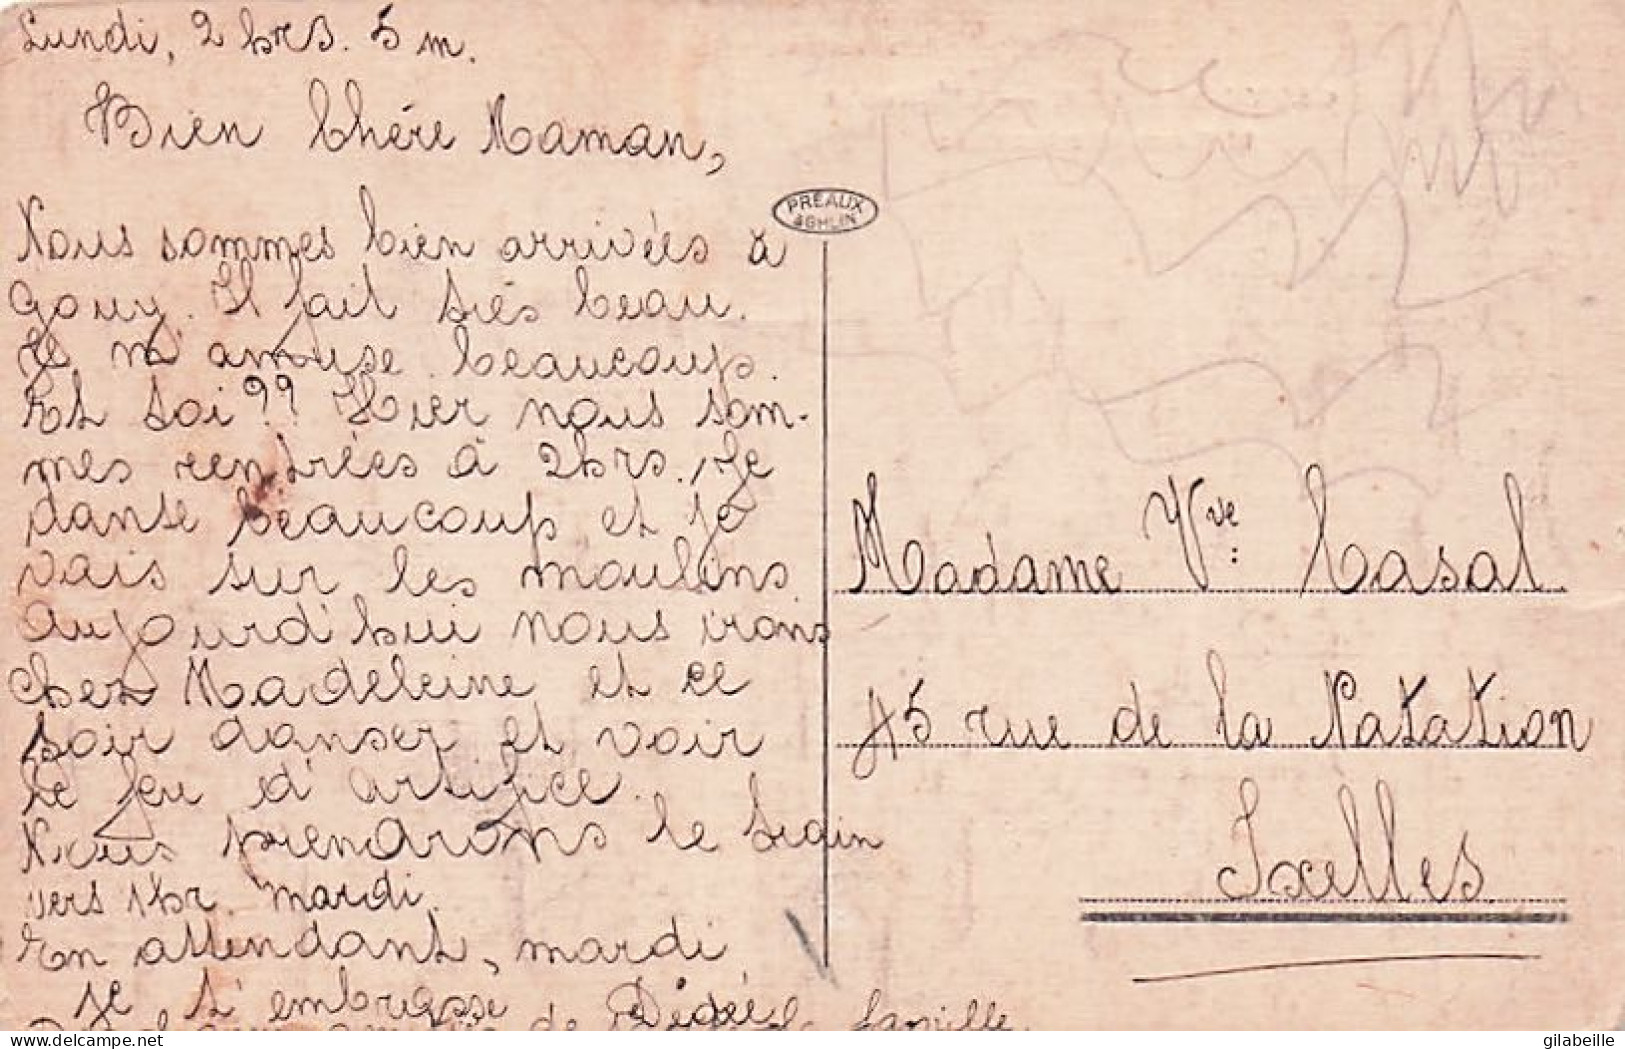 Lundi, 2 hrs. 5 m.
Bien Chère Maman,
Nous sommes bien arrivées à
Gouy. Il fait très beau.
Je m'amuse beaucoup.
Et toi?? Hier nous som-
mes rentrées à 2hrs. Je
danse beaucoup et je
vais sur les moulins.
aujourd'hui nous irons
chez Madeleine et ce
soir danser et voir
le feu d'artifice.
Nous prendrons le train
vers 1hr. mardi.
En attendant, mardi
je t'embrasse
de la famille.
PRÉAUX
GHLIN
Madame Vve: Casal
45 rue de la Natation
Ixelles
gilabeille